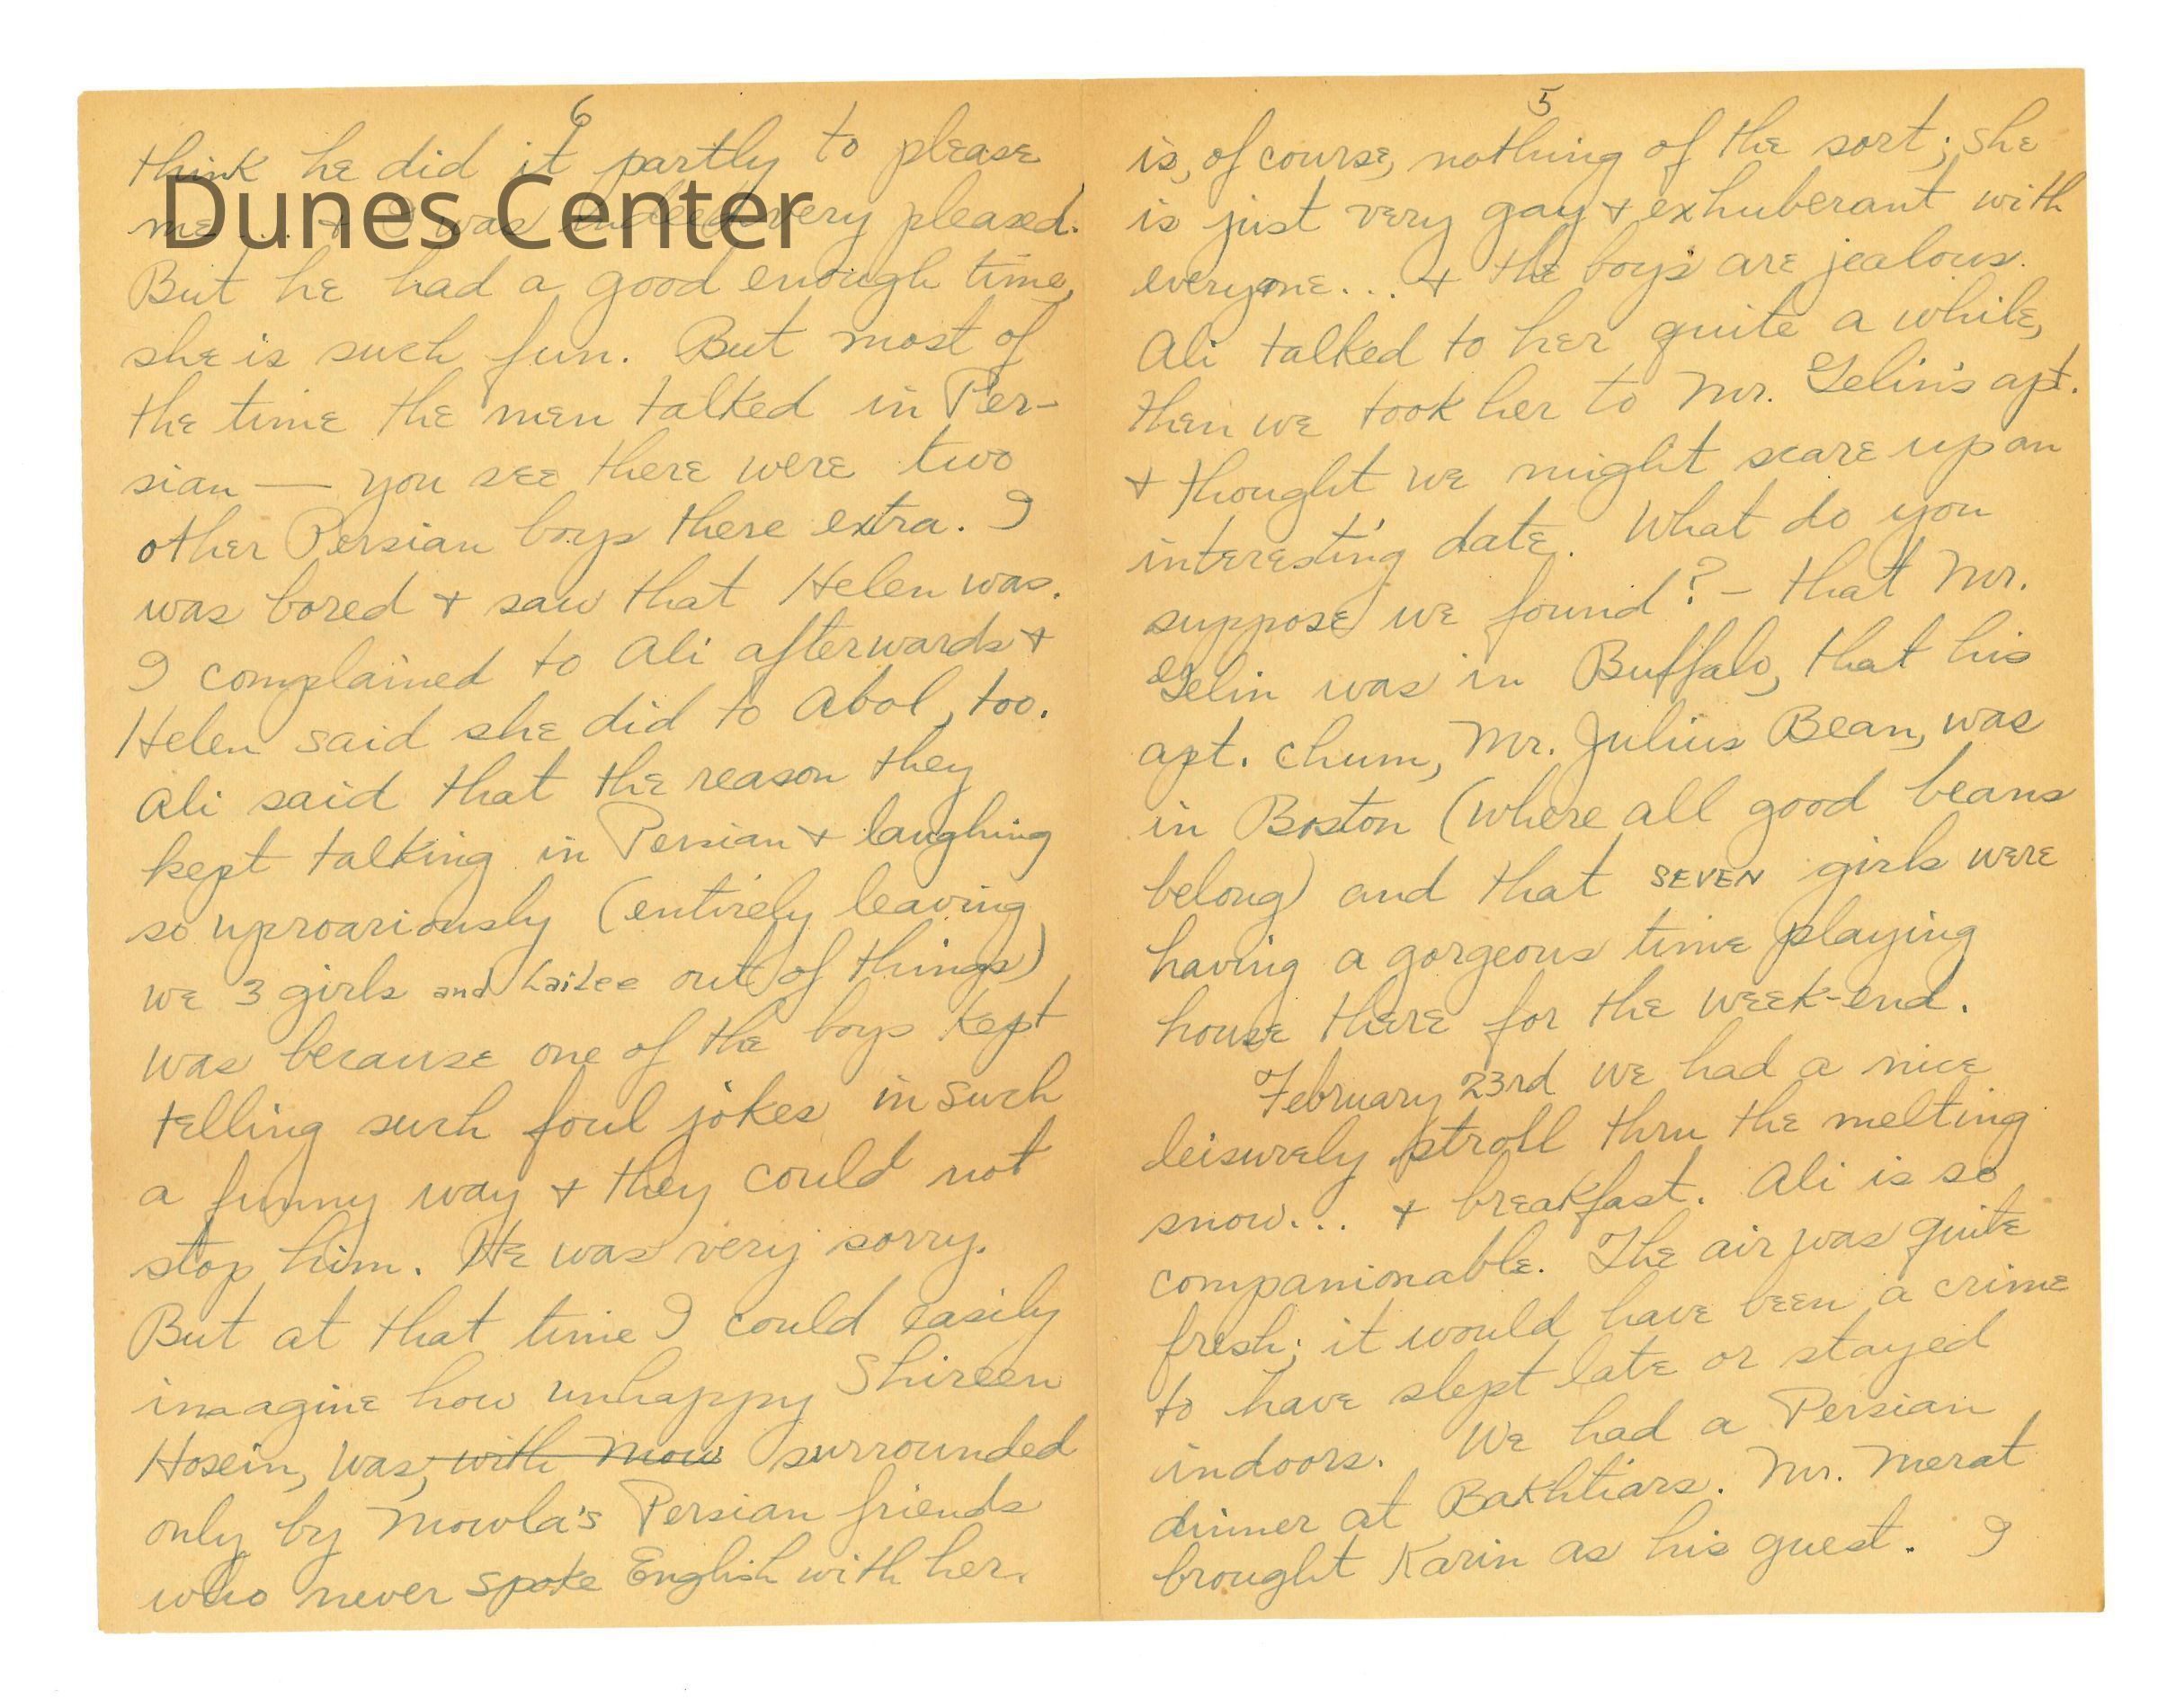 5
is, of course, nothing of the sort; she
is just very gay + exhuberant with
everyone... + the boys are jealous.
Ali talked to her quite a while,
then we took her to Mr. Gelin's apt.
+ thought we might scare up an
interesting date. What do you
suppose we found? - that Mr.
Gelin was in Buffalo, that his
apt. chum, Mr. Julius Bean, was
in Boston (where all good beans
belong) and that SEVEN girls were
having a gorgeous time playing
house there for the week-end.
February 23rd we had a nice
leisurely stroll thru the melting
snow... + breakfast. Ali is so
companionable. The air was quite
fresh; it would have been a crime
to have slept late or stayed
indoors. We had a Persian
dinner at Bakhtiars. Mr. Merat
brought Karin as his guest. I
6
think he did it partly to please
me... + I was indeed very pleased.
But he had a good enough time,
she is such fun. But most of
the time the men talked in Per-
sian — you see there were two
other Persian boys there extra. I
was bored + saw that Helen was.
I complained to Ali afterwards +
Helen said she did to Abol, too.
Ali said that the reason they
kept talking in Persian + laughing
so uproariously (entirely leaving
we 3 girls and Lailee out of things)
was because one of the boys kept
telling such foul jokes in such
a funny way + they could not
stop him. He was very sorry.
But at that time I could easily
imaagine how unhappy Shireen
Hosein, was, with Mow surrounded
only by Mowla's Persian friends
who never spoke English with her.
Dunes Center